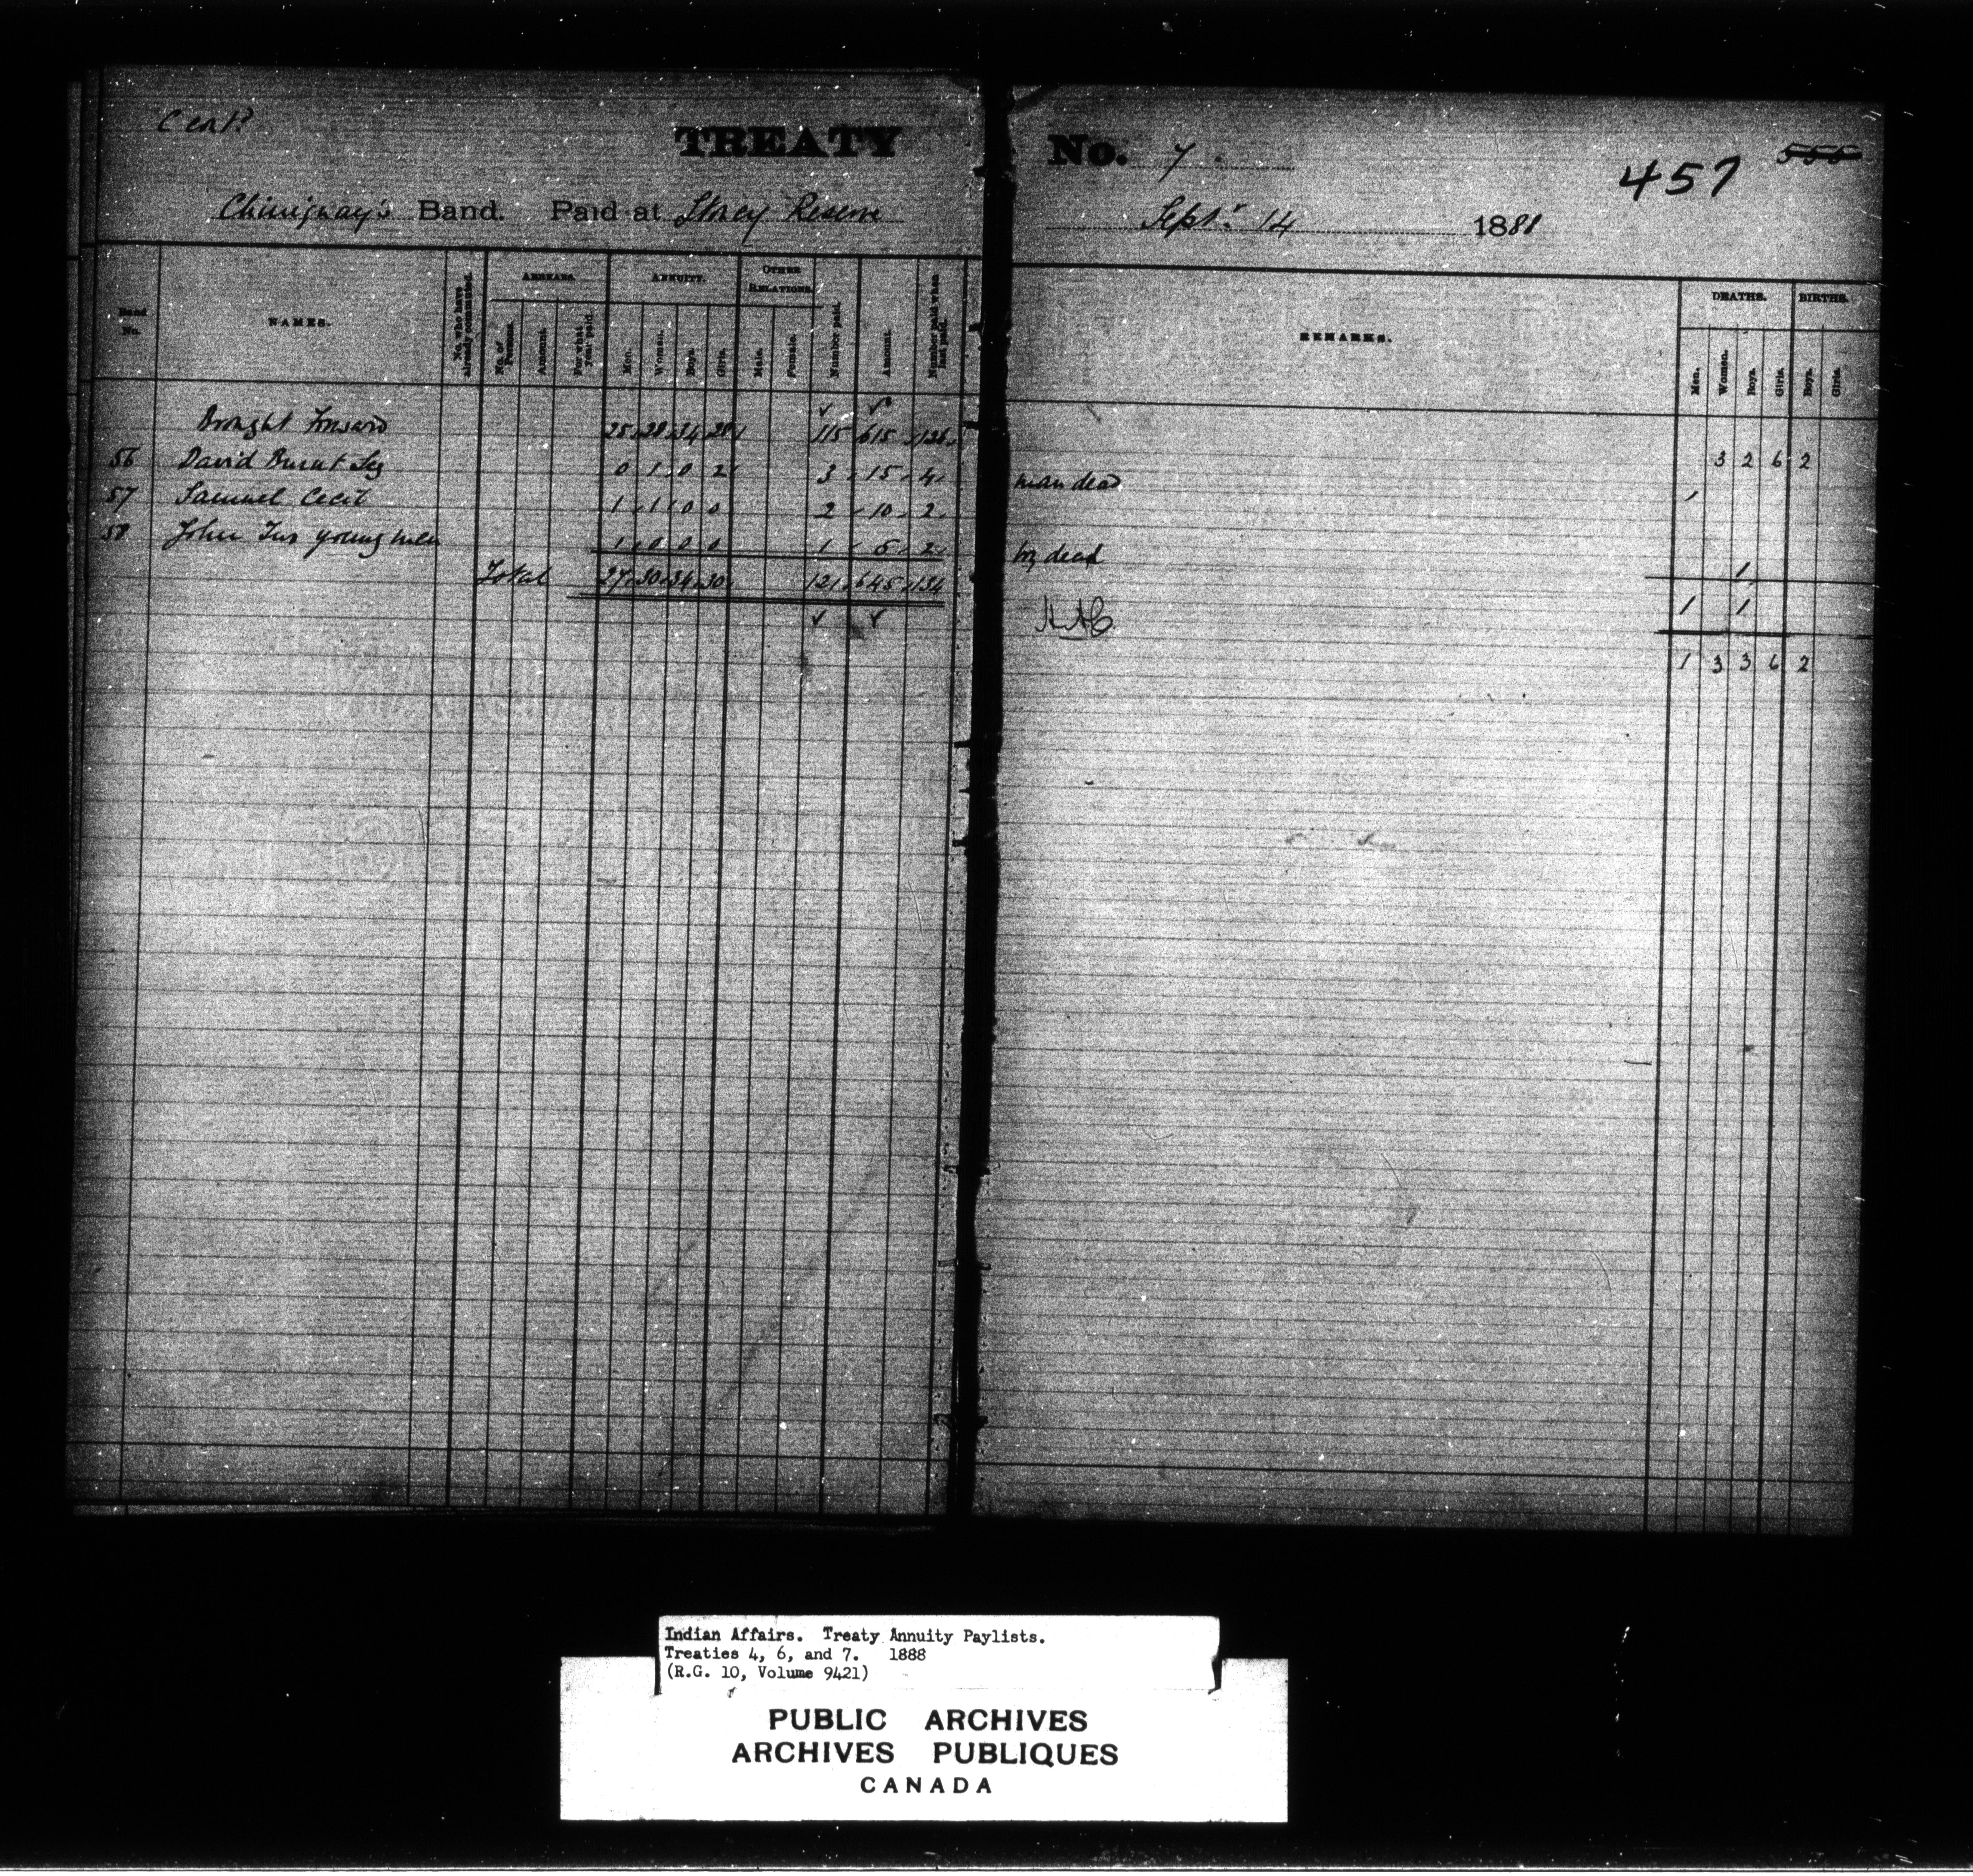 Cont?
TREATY No. 7.
457 555
Chiniquay's Band. Paid at Stoney Reserve Septr. 14 1888
Band No.
NAMES.
No. who have already commuted.
ARREARS.
No. of Persons.
Amount.
For what year paid.
ANNUITY.
Men.
Women.
Boys.
Girls.
OTHER RELATIONS.
Male.
Female.
Number paid.
Amount.
Number paid when last paid.
REMARKS.
DEATHS.
Men.
Women.
Boys.
Girls.
BIRTHS.
Boys.
Girls.
Brought Forward 25 28 34 28 115 615 126 3 2 6 2
56 David Burnt Leg 0 1 0 2 3 15 4 man dead 1
57 Samuel Cecil 1 1 0 0 2 10 2
58 John Two young men 1 0 0 0 1 5 2 boy dead 1
Total 27 30 34 30 121 645 134 1 1
1 3 3 6 2
Indian Affairs. Treaty Annuity Paylists.
Treaties 4, 6, and 7. 1888
(R.G. 10, Volume 9421)
PUBLIC ARCHIVES
ARCHIVES PUBLIQUES
CANADA